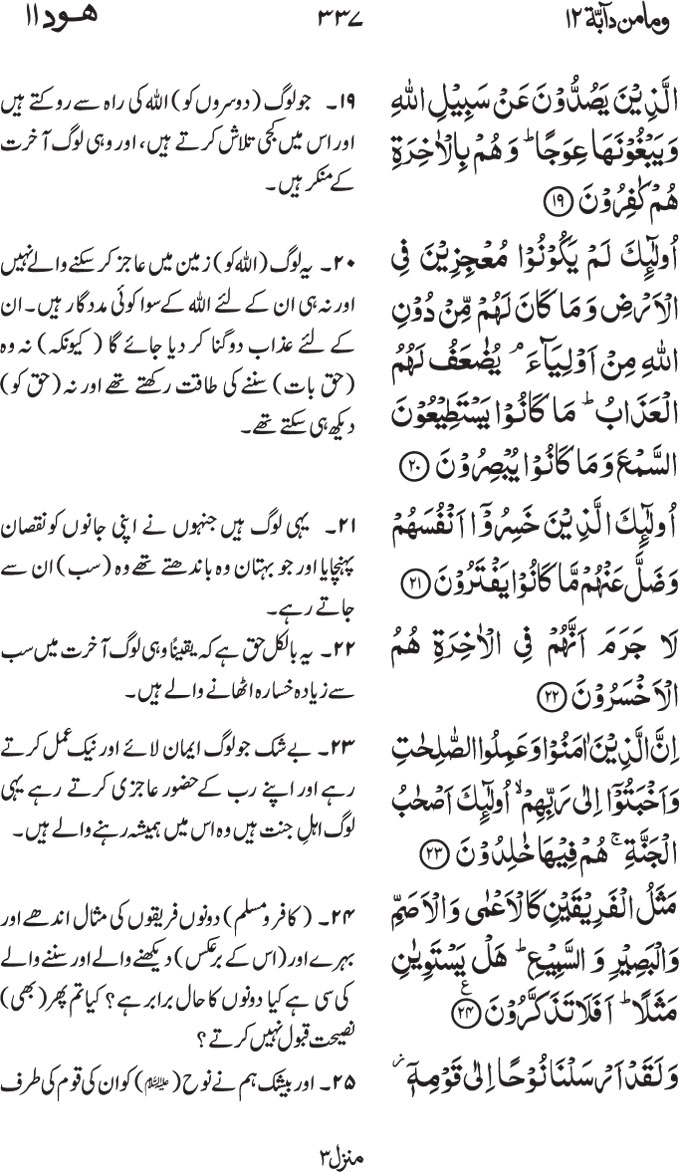 ومامن دآبة ۱۲
۳۳۷
هود ۱۱
الَّذِيۡنَ يَصُدُّوۡنَ عَنۡ سَبِيۡلِ اللّٰهِ
وَيَبۡغُوۡنَهَا عِوَجًا ؕ وَهُمۡ بِالۡاٰخِرَةِ
هُمۡ كٰفِرُوۡنَ ۱۹
اُولٰٓئِكَ لَمۡ يَكُوۡنُوۡا مُعۡجِزِيۡنَ فِى
الۡاَرۡضِ وَمَا كَانَ لَهُمۡ مِّنۡ دُوۡنِ
اللّٰهِ مِنۡ اَوۡلِيَآءَ ۘ يُضٰعَفُ لَهُمُ
الۡعَذَابُ ؕ مَا كَانُوۡا يَسۡتَطِيۡعُوۡنَ
السَّمۡعَ وَمَا كَانُوۡا يُبۡصِرُوۡنَ ۲۰
اُولٰٓئِكَ الَّذِيۡنَ خَسِرُوۡۤا اَنۡفُسَهُمۡ
وَضَلَّ عَنۡهُمۡ مَّا كَانُوۡا يَفۡتَرُوۡنَ ۲۱
لَا جَرَمَ اَنَّهُمۡ فِى الۡاٰخِرَةِ هُمُ
الۡاَخۡسَرُوۡنَ ۲۲
اِنَّ الَّذِيۡنَ اٰمَنُوۡا وَعَمِلُوا الصّٰلِحٰتِ
وَاَخۡبَتُوۡۤا اِلٰى رَبِّهِمۡ ۙ اُولٰٓئِكَ اَصۡحٰبُ
الۡجَنَّةِ ۚ هُمۡ فِيۡهَا خٰلِدُوۡنَ ۲۳
مَثَلُ الۡفَرِيۡقَيۡنِ كَالۡاَعۡمٰى وَالۡاَصَمِّ
وَالۡبَصِيۡرِ وَ السَّمِيۡعِ ؕ هَلۡ يَسۡتَوِيٰنِ
مَثَلًا ؕ اَفَلَا تَذَكَّرُوۡنَ ۲۴ ع
وَلَقَدۡ اَرۡسَلۡنَا نُوۡحًا اِلٰى قَوۡمِهٖۤ ز
۱۹۔ جو لوگ (دوسروں کو) اللہ کی راہ سے روکتے ہیں
اور اس میں کجی تلاش کرتے ہیں، اور وہی لوگ آخرت
کے منکر ہیں۔
۲۰۔ یہ لوگ (اللہ کو) زمین میں عاجز کر سکنے والے نہیں
اور نہ ہی ان کے لئے اللہ کے سوا کوئی مددگار ہیں۔ ان
کے لئے عذاب دوگنا کر دیا جائے گا (کیونکہ) نہ وہ
(حق بات) سننے کی طاقت رکھتے تھے اور نہ (حق کو)
دیکھ ہی سکتے تھے۔
۲۱۔ یہی لوگ ہیں جنہوں نے اپنی جانوں کو نقصان
پہنچایا اور جو بہتان وہ باندھتے تھے وہ (سب) ان سے
جاتے رہے۔
۲۲۔ یہ بالکل حق ہے کہ یقیناً وہی لوگ آخرت میں سب
سے زیادہ خسارہ اٹھانے والے ہیں۔
۲۳۔ بے شک جو لوگ ایمان لائے اور نیک عمل کرتے
رہے اور اپنے رب کے حضور عاجزی کرتے رہے یہی
لوگ اہلِ جنت ہیں وہ اس میں ہمیشہ رہنے والے ہیں۔
۲۴۔ (کافر و مسلم) دونوں فریقوں کی مثال اندھے اور
بہرے اور (اس کے برعکس) دیکھنے والے اور سننے والے
کی سی ہے کیا دونوں کا حال برابر ہے؟ کیا تم پھر (بھی)
نصیحت قبول نہیں کرتے؟
۲۵۔ اور بیشک ہم نے نوح (علیہ السلام) کو ان کی قوم کی طرف
منزل ۳